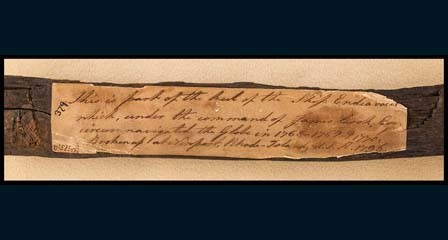 379
This is part of the keel of the Ship Endeavour
which, under the command of James Cook, Esq
circumnavigated the Globe in 1768-1769 & 1770
Broken up at Newport, Rhode Island, U.S.A. 1795